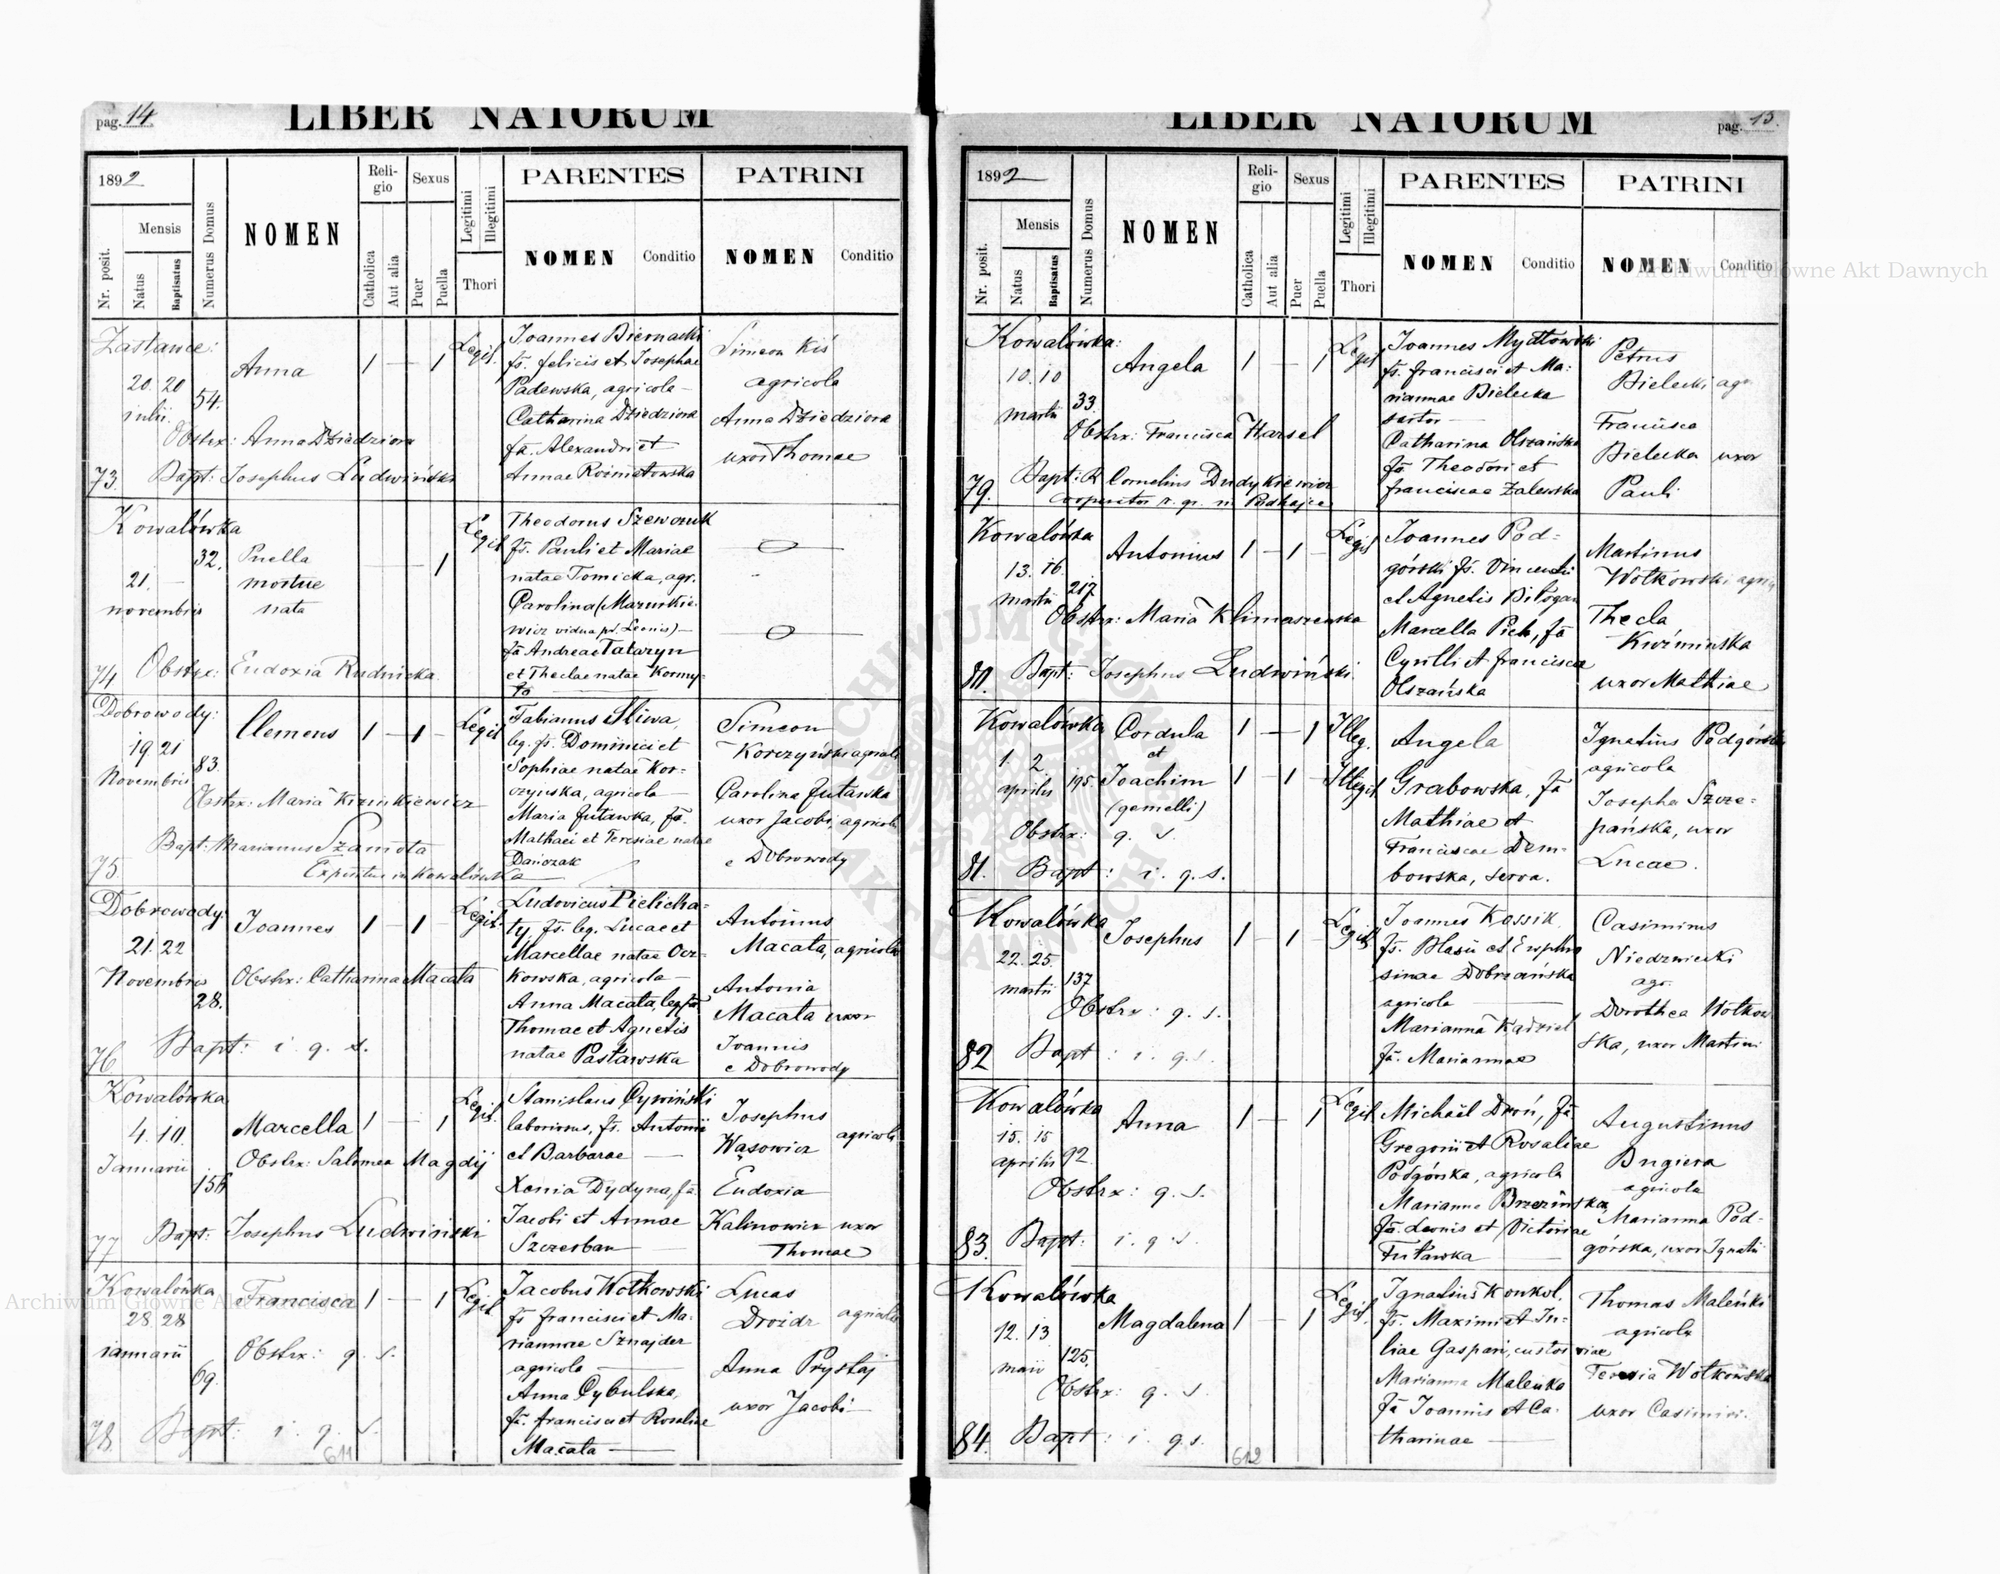 pag. 14
LIBER NATORUM
1892
Nr. posit.
Mensis
Natus
Baptisatus
Numerus Domus
NOMEN
Religio
Catholica
Aut alia
Sexus
Puer
Puella
Legitimi
Illegitimi
Thori
PARENTES
NOMEN
Conditio
PATRINI
NOMEN
Conditio
Zastawce:
20. 20
iulii
54.
Anna
1 — — 1
Legit.
Obstrx: Anna Dziedziora
73. Bapt: Josephus Ludwiński
Joannes Biernacki
fs. felicis et Josephae
Padewska, agricola —
Catharina Dziedziora
fa. Alexandri et
Annae Rożniatowska
Simeon Kiś
agricola
Anna Dziedziora
uxor Thomae
Kowalówka
32.
21. —
novembris
Puella
mortue
nata
1
Legit
74 Obstx: Eudoxia Rudnicka
Theodorus Szewczuk
fs. Pauli et Mariae
natae Tomicka, agr.
Carolina (Mazurkie-
wicz vidua pt. Leonis) —
fa Andreae Tataryn
et Theclae natae Kormy-
ło
Dobrowody:
19. 21
Novembris
83.
Clemens
1 — 1 —
Legit
Obstrx: Maria Krzinkiewicz
Bapt: Marianus Szamota
75. Expositus in Kowalówka
Fabianus Sliwa,
leg. fs. Dominici et
Sophiae natae Kor-
czynska, agricola —
Maria Futawka, fa.
Mathaei et Teresiae natae
Dańczak
Simeon
Korczyński agricola
Carolina Futawka
uxor Jacobi, agricola
e Dobrowody
Dobrowody:
21. 22
Novembris
28.
Joannes
1 — 1 —
Legit.
Obstrx: Catharina Macata
76 Bapt: i. q. s.
Ludovicus Pielicha-
ty, fs. leg. Lucae et
Marcellae natae Ocz-
kowska, agricola —
Anna Macata, leg. fa
Thomae et Agnetis
natae Pasławska
Antonius
Macata, agricola
Antonia
Macata uxor
Joannis
e Dobrowody
Kowalówka
4. 10.
Januarii
156
Marcella
1 — — 1
Legit.
Obstrx: Salomea Magdij
77 Bapt: Josephus Ludwiński
Stanislaus Cywiński
laboriosus, fs. Antonii
et Barbarae —
Xenia Dydyna, fa.
Jacobi et Annae
Szczerban —
Josephus
Wąsowicz agricola
Eudoxia
Kalinowicz uxor
Thomae
Kowalówka
28. 28
ianuarii
69.
Francisca
1 — — 1
Legit
Obstrx: q. s.
78 Bapt: i. q. s.
Jacobus Wołkowski
fs francisci et Ma-
riannae Sznajder
agricola —
Anna Cybulska,
fa. francisci et Rosaliae
Macata —
Lucas
Droidz agricola
Anna Prystaj
uxor Jacobi —
611
LIBER NATORUM
pag. 15.
1892
Nr. posit.
Mensis
Natus
Baptisatus
Numerus Domus
NOMEN
Religio
Catholica
Aut alia
Sexus
Puer
Puella
Legitimi
Illegitimi
Thori
PARENTES
NOMEN
Conditio
PATRINI
NOMEN
Conditio
Kowalówka:
10. 10
martii
33.
Angela
1 — — 1
Legit
Obstrx: Francisca Harsel
79. Bapt: R Cornelius Dudykiewicz
cooperator r. gr. in Podhajce
Joannes Mydłowski
fs. francisci et Ma-
riannae Bielecka
sartor —
Catharina Olszańska
fa Theodori et
franciscae Zalewska
Petrus
Bielecki agr.
Francisca
Bielecka uxor
Pauli
Kowalówka
13. 16.
martii
217
Antonius
1 — 1 —
Legit
Obstrx: Maria Klimaszewska
80. Bapt: Josephus Ludwiński.
Joannes Pod-
górski fs. Vincentii
et Agnetis Biłogan
Marcella Pich, fa
Cyrilli et francisca
Olszańska
Martinus
Wołkowski agric
Thecla
Kuźmińska
uxor Mathiae
Kowalówka
1. 2.
aprilis
195.
Cordula
et
Joachim
(gemelli)
1 — — 1
Illeg.
1 — 1
Illegit
Obstrx: q. s.
81. Bapt: i. q. s.
Angela
Grabowska, fa
Mathiae et
Franciscae Dem-
bowska, serva.
Ignatius Podgórski
agricola
Josepha Szcze-
pańska, uxor
Lucae.
Kowalówka
22. 25.
martii
137
Josephus
1 — 1 —
Legit
Obstrx: q. s.
82 Bapt: i. q. s.
Joannes Kassik
fs. Blasii et Euphro
sinae Dobrzańska
agricola —
Marianna Kądziel
fa. Mariannae
Casimirus
Niedzwiecki
agr.
Dorothea Wołkow
ska, uxor Martini
Kowalówka
15. 15
aprilis
92.
Anna
1 — — 1
Legit
Obstrx: q. s.
83. Bapt: i. q. s.
Michaël Droń, fs
Gregorii et Rosaliae
Podgórska, agricola
Marianna Brzezińska,
fa. Leonis et Victoriae
Futawka —
Augustinus
Bugiera
agricola
Marianna Pod-
górska, uxor Ignatii
Kowalówka
12. 13
maii
125.
Magdalena
1 — — 1
Legit.
Obstrx: q. s.
84. Bapt: i. q. s.
Ignatius Konkol,
fs. Maximi et Ju-
liae Gaspari, custos viae
Marianna Malenko
fa Joannis et Ca-
tharinae —
Thomas Maleńki
agricola
Teresia Wołkowska
uxor Casimiri.
612
Archiwum Główne Akt Dawnych
ARCHIWUM GŁÓWNE AKT DAWNYCH
Archiwum Główne Akt Dawnych